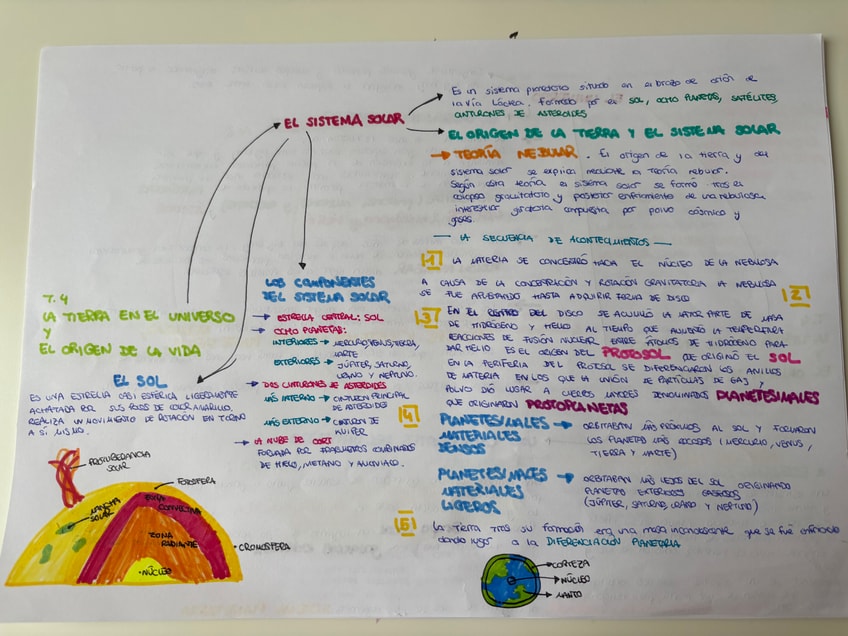 T.4
LA TIERRA EN EL UNIVERSO
Y
EL ORIGEN DE LA VIDA
EL SISTEMA SOLAR
Es un sistema planetario situado en el brazo de orión de
la Vía Láctea. Formado por el SOL, OCHO PLANETAS, SATÉLITES,
CINTURONES DE ASTEROIDES
EL ORIGEN DE LA TIERRA Y EL SISTEMA SOLAR
TEORÍA NEBULAR. El origen de la tierra y del
sistema solar se explica mediante la teoría nebular.
Según esta teoría el sistema solar se formó tras el
colapso gravitatorio y posterior enfriamiento de una nebulosa
interestelar giratoria compuesta por polvo cósmico y
gases.
LA SECUENCIA DE ACONTECIMIENTOS
1 LA MATERIA SE CONCENTRÓ HACIA EL NÚCLEO DE LA NEBULOSA
A CAUSA DE LA CONCENTRACIÓN Y ROTACIÓN GRAVITATORIA LA NEBULOSA
SE FUE APLASTANDO HASTA ADQUIRIR FORMA DE DISCO 2
3 EN EL CENTRO DEL DISCO SE ACUMULÓ LA MAYOR PARTE DE MASA
DE HIDRÓGENO Y HELIO AL TIEMPO QUE AUMENTÓ LA TEMPERATURA
REACCIONES DE FUSIÓN NUCLEAR ENTRE ÁTOMOS DE HIDRÓGENO PARA
DAR HELIO ES EL ORIGEN DEL PROTOSOL QUE ORIGINÓ EL SOL
EN LA PERIFERIA DEL PROTOSOL SE DIFERENCIARON LOS ANILLOS
DE MATERIA EN LOS QUE LA UNIÓN DE PARTÍCULAS DE GAS Y
POLVO DIO LUGAR A CUERPOS MAYORES DENOMINADOS PLANETESIMALES
QUE ORIGINARON PROTOPLANETAS
4
PLANETESIMALES
MATERIALES
DENSOS
ORBITABAN MÁS PRÓXIMOS AL SOL Y FORMARON
LOS PLANETAS MÁS ROCOSOS (MERCURIO, VENUS,
TIERRA Y MARTE)
PLANETESIMALES
MATERIALES
LIGEROS
ORBITABAN MÁS LEJOS DEL SOL ORIGINANDO
PLANETAS EXTERIORES GASEOSOS
(JÚPITER, SATURNO, URANO Y NEPTUNO)
5 La Tierra tras su formación era una masa incandescente que se fue enfriando
dando lugar a la DIFERENCIACIÓN PLANETARIA
CORTEZA
NÚCLEO
MANTO
LOS COMPONENTES
DEL SISTEMA SOLAR
ESTRELLA CENTRAL: SOL
OCHO PLANETAS:
INTERIORES MERCURIO, VENUS, TIERRA,
MARTE
EXTERIORES JÚPITER, SATURNO,
URANO Y NEPTUNO.
DOS CINTURONES DE ASTEROIDES
MÁS INTERNO CINTURÓN PRINCIPAL
DE ASTEROIDES
MÁS EXTERNO CINTURÓN DE
KUIPER
LA NUBE DE OORT
FORMADA POR FRAGMENTOS COMBINADOS
DE HIELO, METANO Y AMONIACO.
EL SOL
ES UNA ESTRELLA CASI ESFÉRICA LIGERAMENTE
ACHATADA POR SUS POLOS DE COLOR AMARILLO.
REALIZA UN MOVIMIENTO DE ROTACIÓN EN TORNO
A SÍ MISMO.
PROTUBERANCIA
SOLAR
FOTOSFERA
MANCHA
SOLAR
ZONA
CONVECTIVA
ZONA
RADIANTE
CROMOSFERA
NÚCLEO